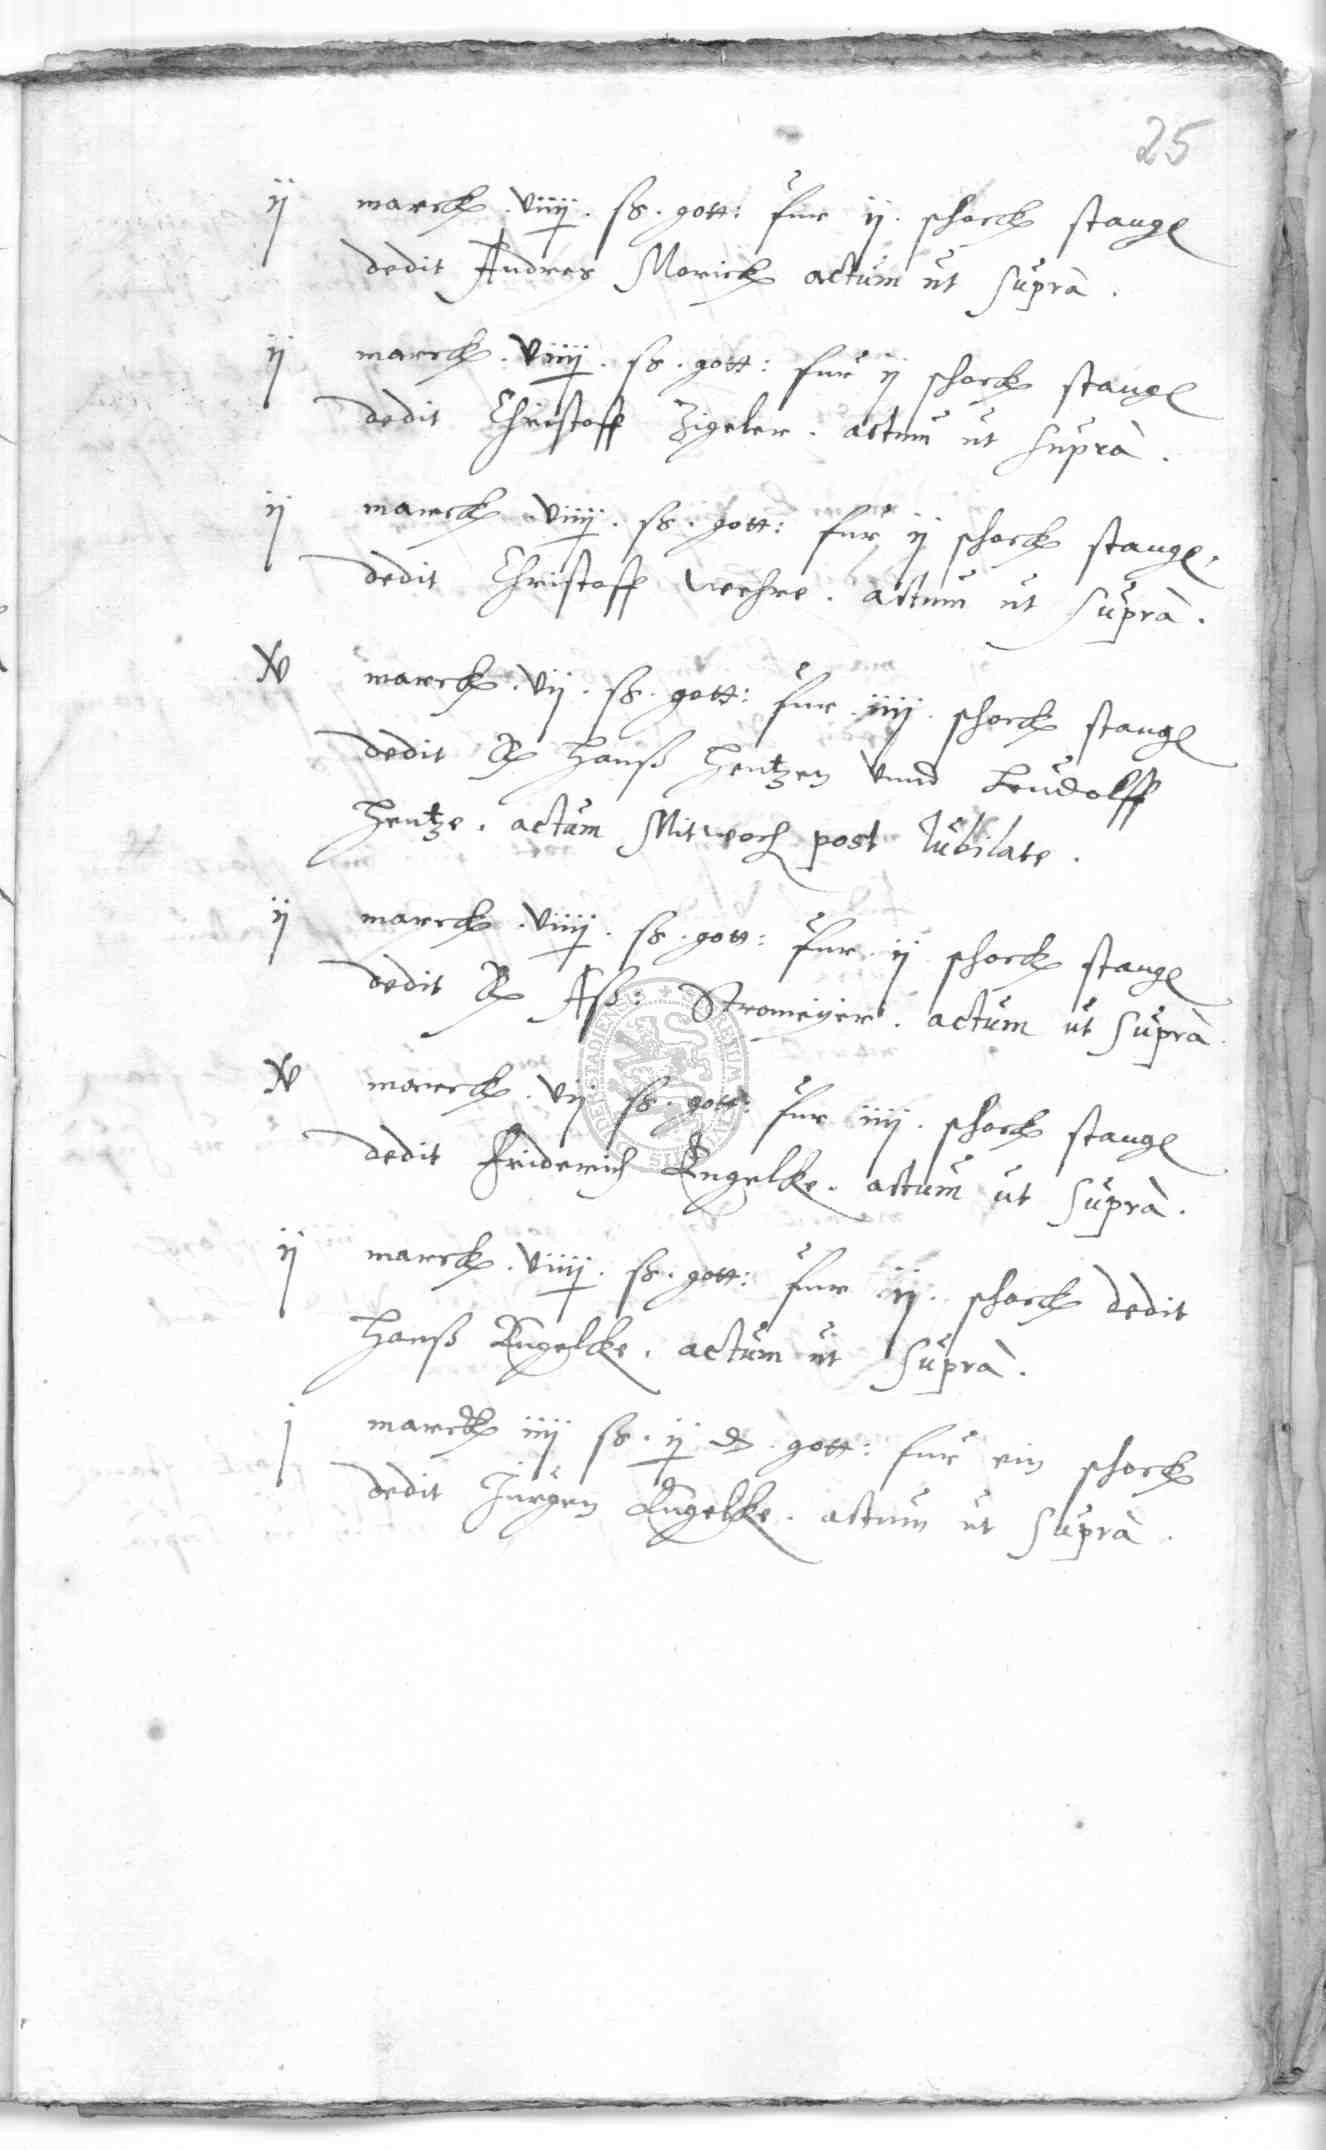 25
ij marck. viiij. ß. gott: fur ij. schock stang
dedit Andres Morick actum ut supra.
ij marck. viiij. ß. gott: fur ij schock stang
dedit Christoff Zigeler. actum ut supra.
ij marck viiij. ß. gott: fur ij schock stang.
dedit Christoff Wehre. actum ut supra.
marck. vij. ß. gott: fur iiij. schock stang
dedit Hanß Hentzen vnnd Leudolff
Hentze. actum Mitwoch post Iubilate.
ij marck. viiij. ß. gott: fur ij schock stang
dedit Aß: Stromeijer. actum ut supra
marck. vij ß. gott: fur iiij. schock stang
dedit Friderich Engelke. actum ut supra.
ij marck. viiij. ß. gott: fur ij. schock dedit
Hanß Engelcke. actum ut supra.
j marck iiij ß. ij d. gott: fur ein schock
dedit Jurgen Engelke. actum ut supra.